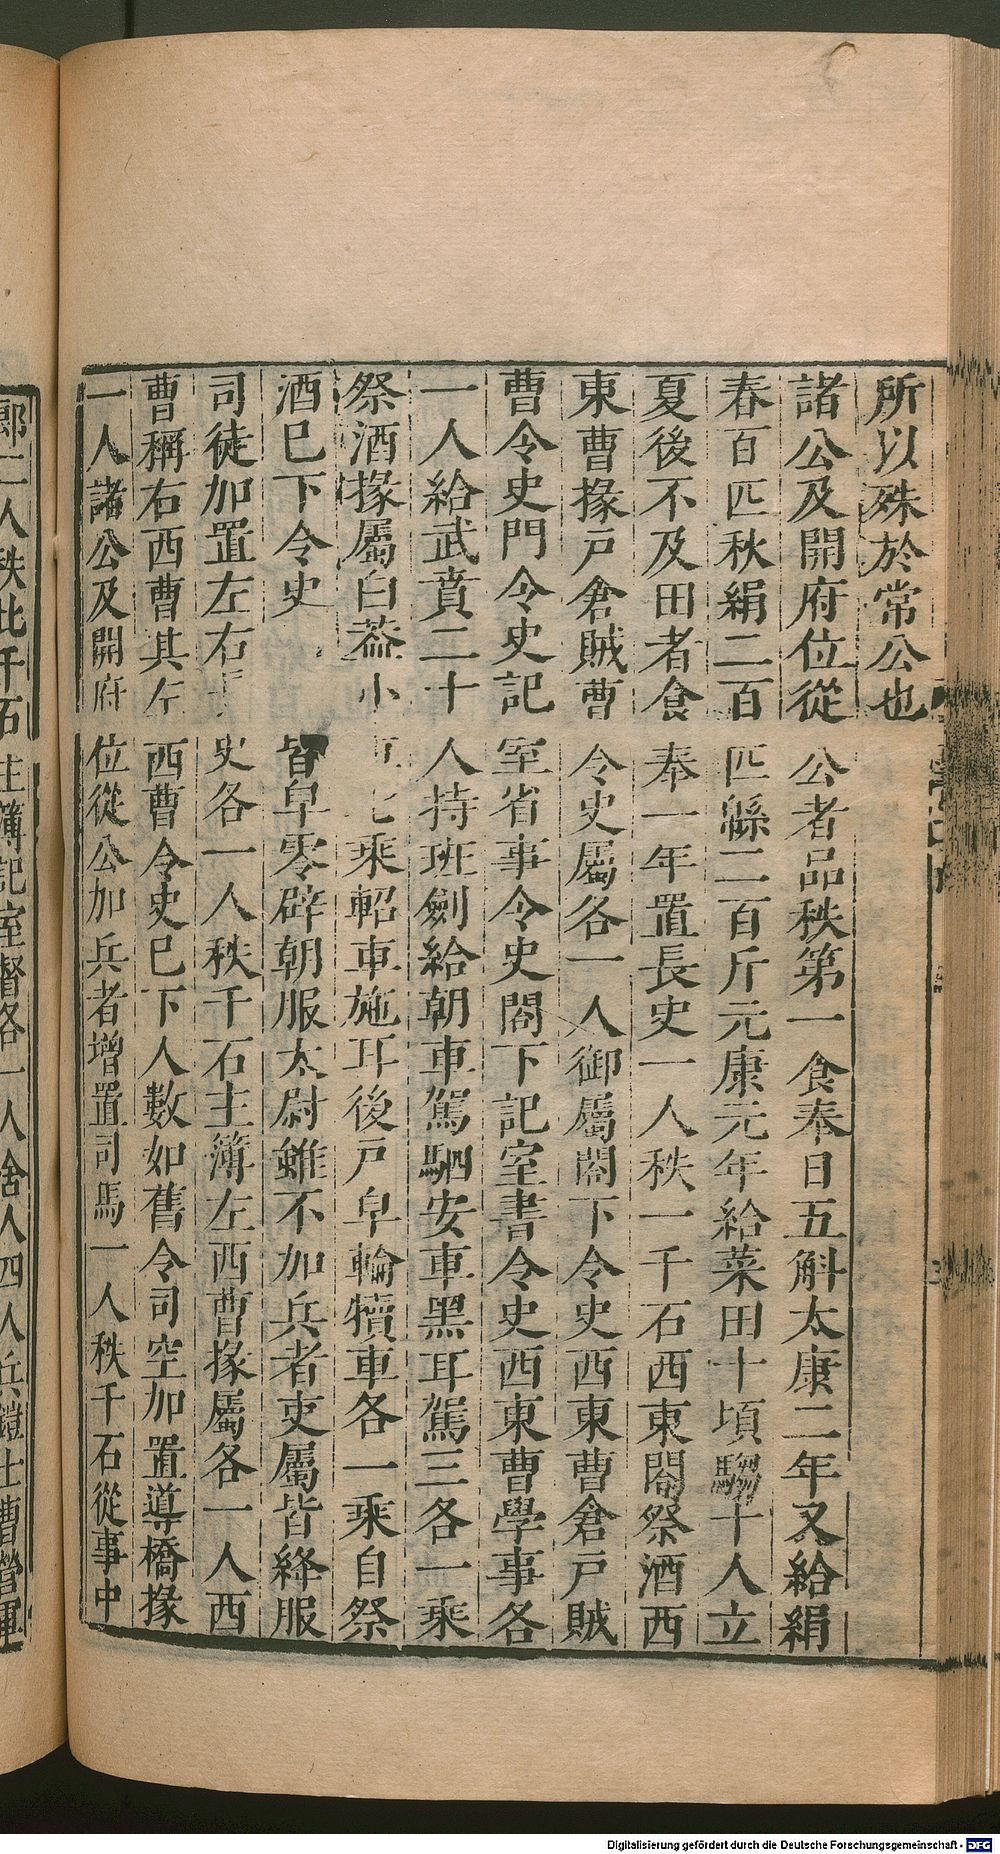 所以殊於常公也
諸公及開府位從公者品秩第一食奉日五斛太康二年又給絹
春百匹秋絹二百匹緜二百斤元康元年給菜田十頃騶十人立
夏後不及田者食奉一年置長史一人秩一千石西東閤祭酒西
東曹掾戶倉賊曹令史屬各一人御屬閤下令史西東曹倉戶賊
曹令史門令史記室省事令史閤下記室書令史西東曹學事各
一人給武賁二十人持班劍給朝車駕駟安車黑耳駕三各一乘
祭酒掾屬白葢小乘軺車施耳後戶皁輪犢車各一乘自祭
酒巳下令史皆皁零辟朝服太尉雖不加兵者吏屬皆絳服
司徒加置左右史各一人秩千石主簿左西曹掾屬各一人西
曹稱右西曹其左西曹令史巳下人數如舊令司空加置導橋掾
一人諸公及開府位從公加兵者增置司馬一人秩千石從事中
郎二人秩比千石主簿記室督各一人舍人四人兵鎧士曹營軍
Digitalisierung gefördert durch die Deutsche Forschungsgemeinschaft - DFG